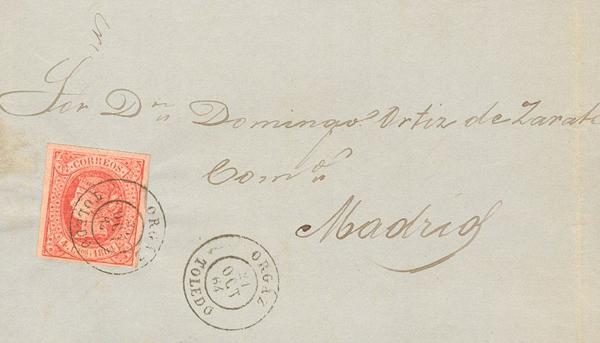 Sor Dn Domingo Ortiz de Zarate
Comº
Madrid
CORREOS
4 Cos 1864
ORGAZ
TOLEDO
ORGAZ
21
OCT
64
TOLEDO